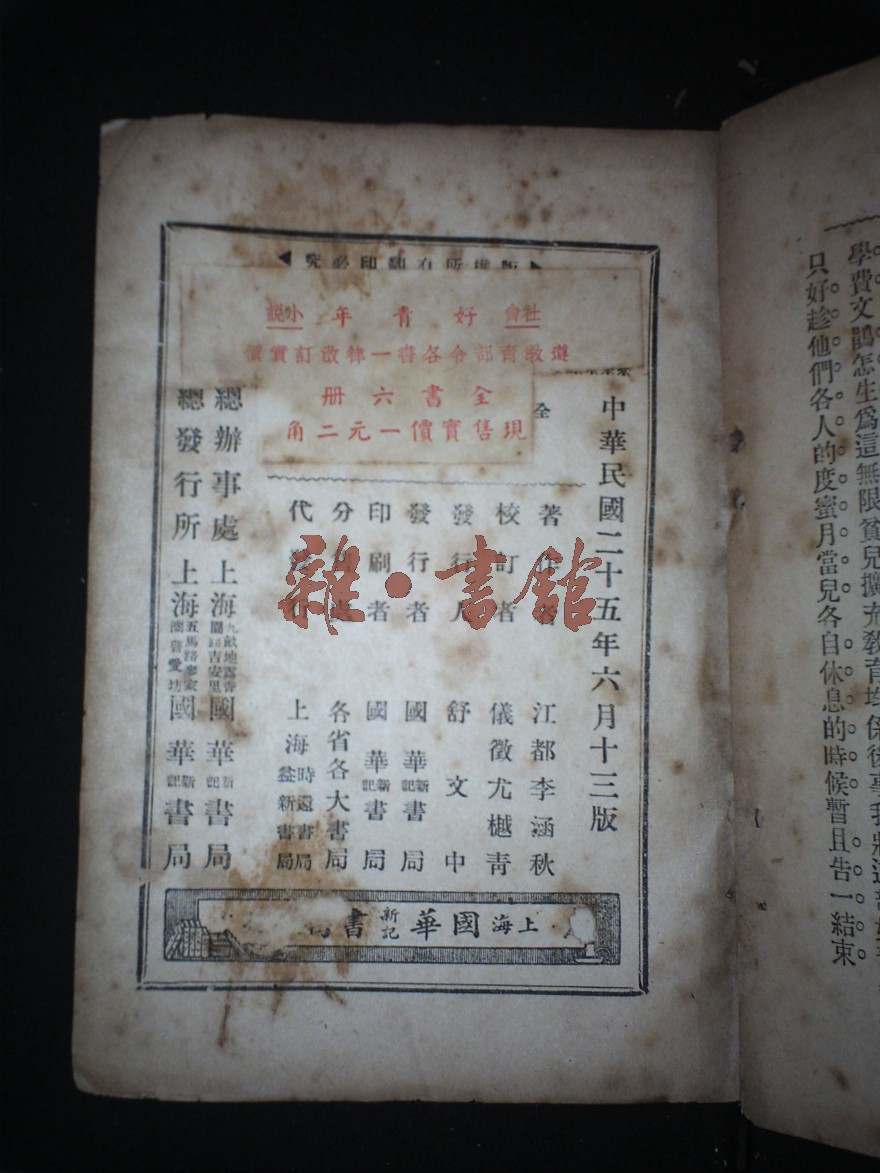 學費文鵑怎生爲這無限貧兒擴充教育均係後事我將這部
只好趁他們各人的度蜜月當兒各自休息的時候暫且告一結束
版權所有翻印必究
社會小說 好青年
遵教育部令各書一律改訂實價
全書六册
現售實價一元二角
全
中華民國二十五年六月十三版
著作者 江都李涵秋
校訂者 儀徵尤樾青
發行人 舒文中
發行者 國華新記書局
印刷者 國華新記書局
分售處 各省各大書局
代發行 上海時還書局 益新書局
總辦事處 上海九畝地露香園路吉安里國華新記書局
總發行所 上海五馬路 國華新記書局
上海國華新記書局
雜·書館